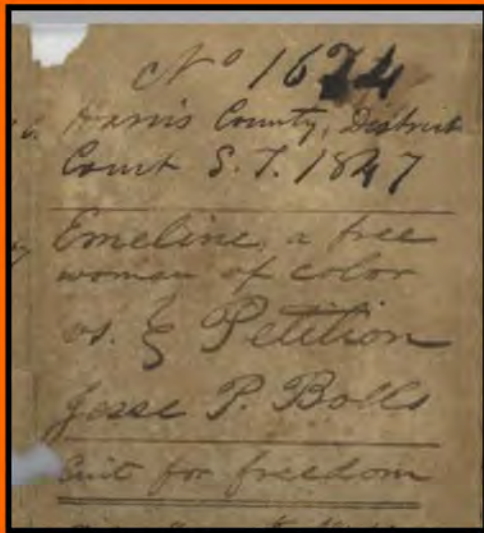 No 1624
Harris County, District
Court S. T. 1847
Emeline, a free
woman of color
vs. Petition
Jesse P. Bolls
Suit for freedom